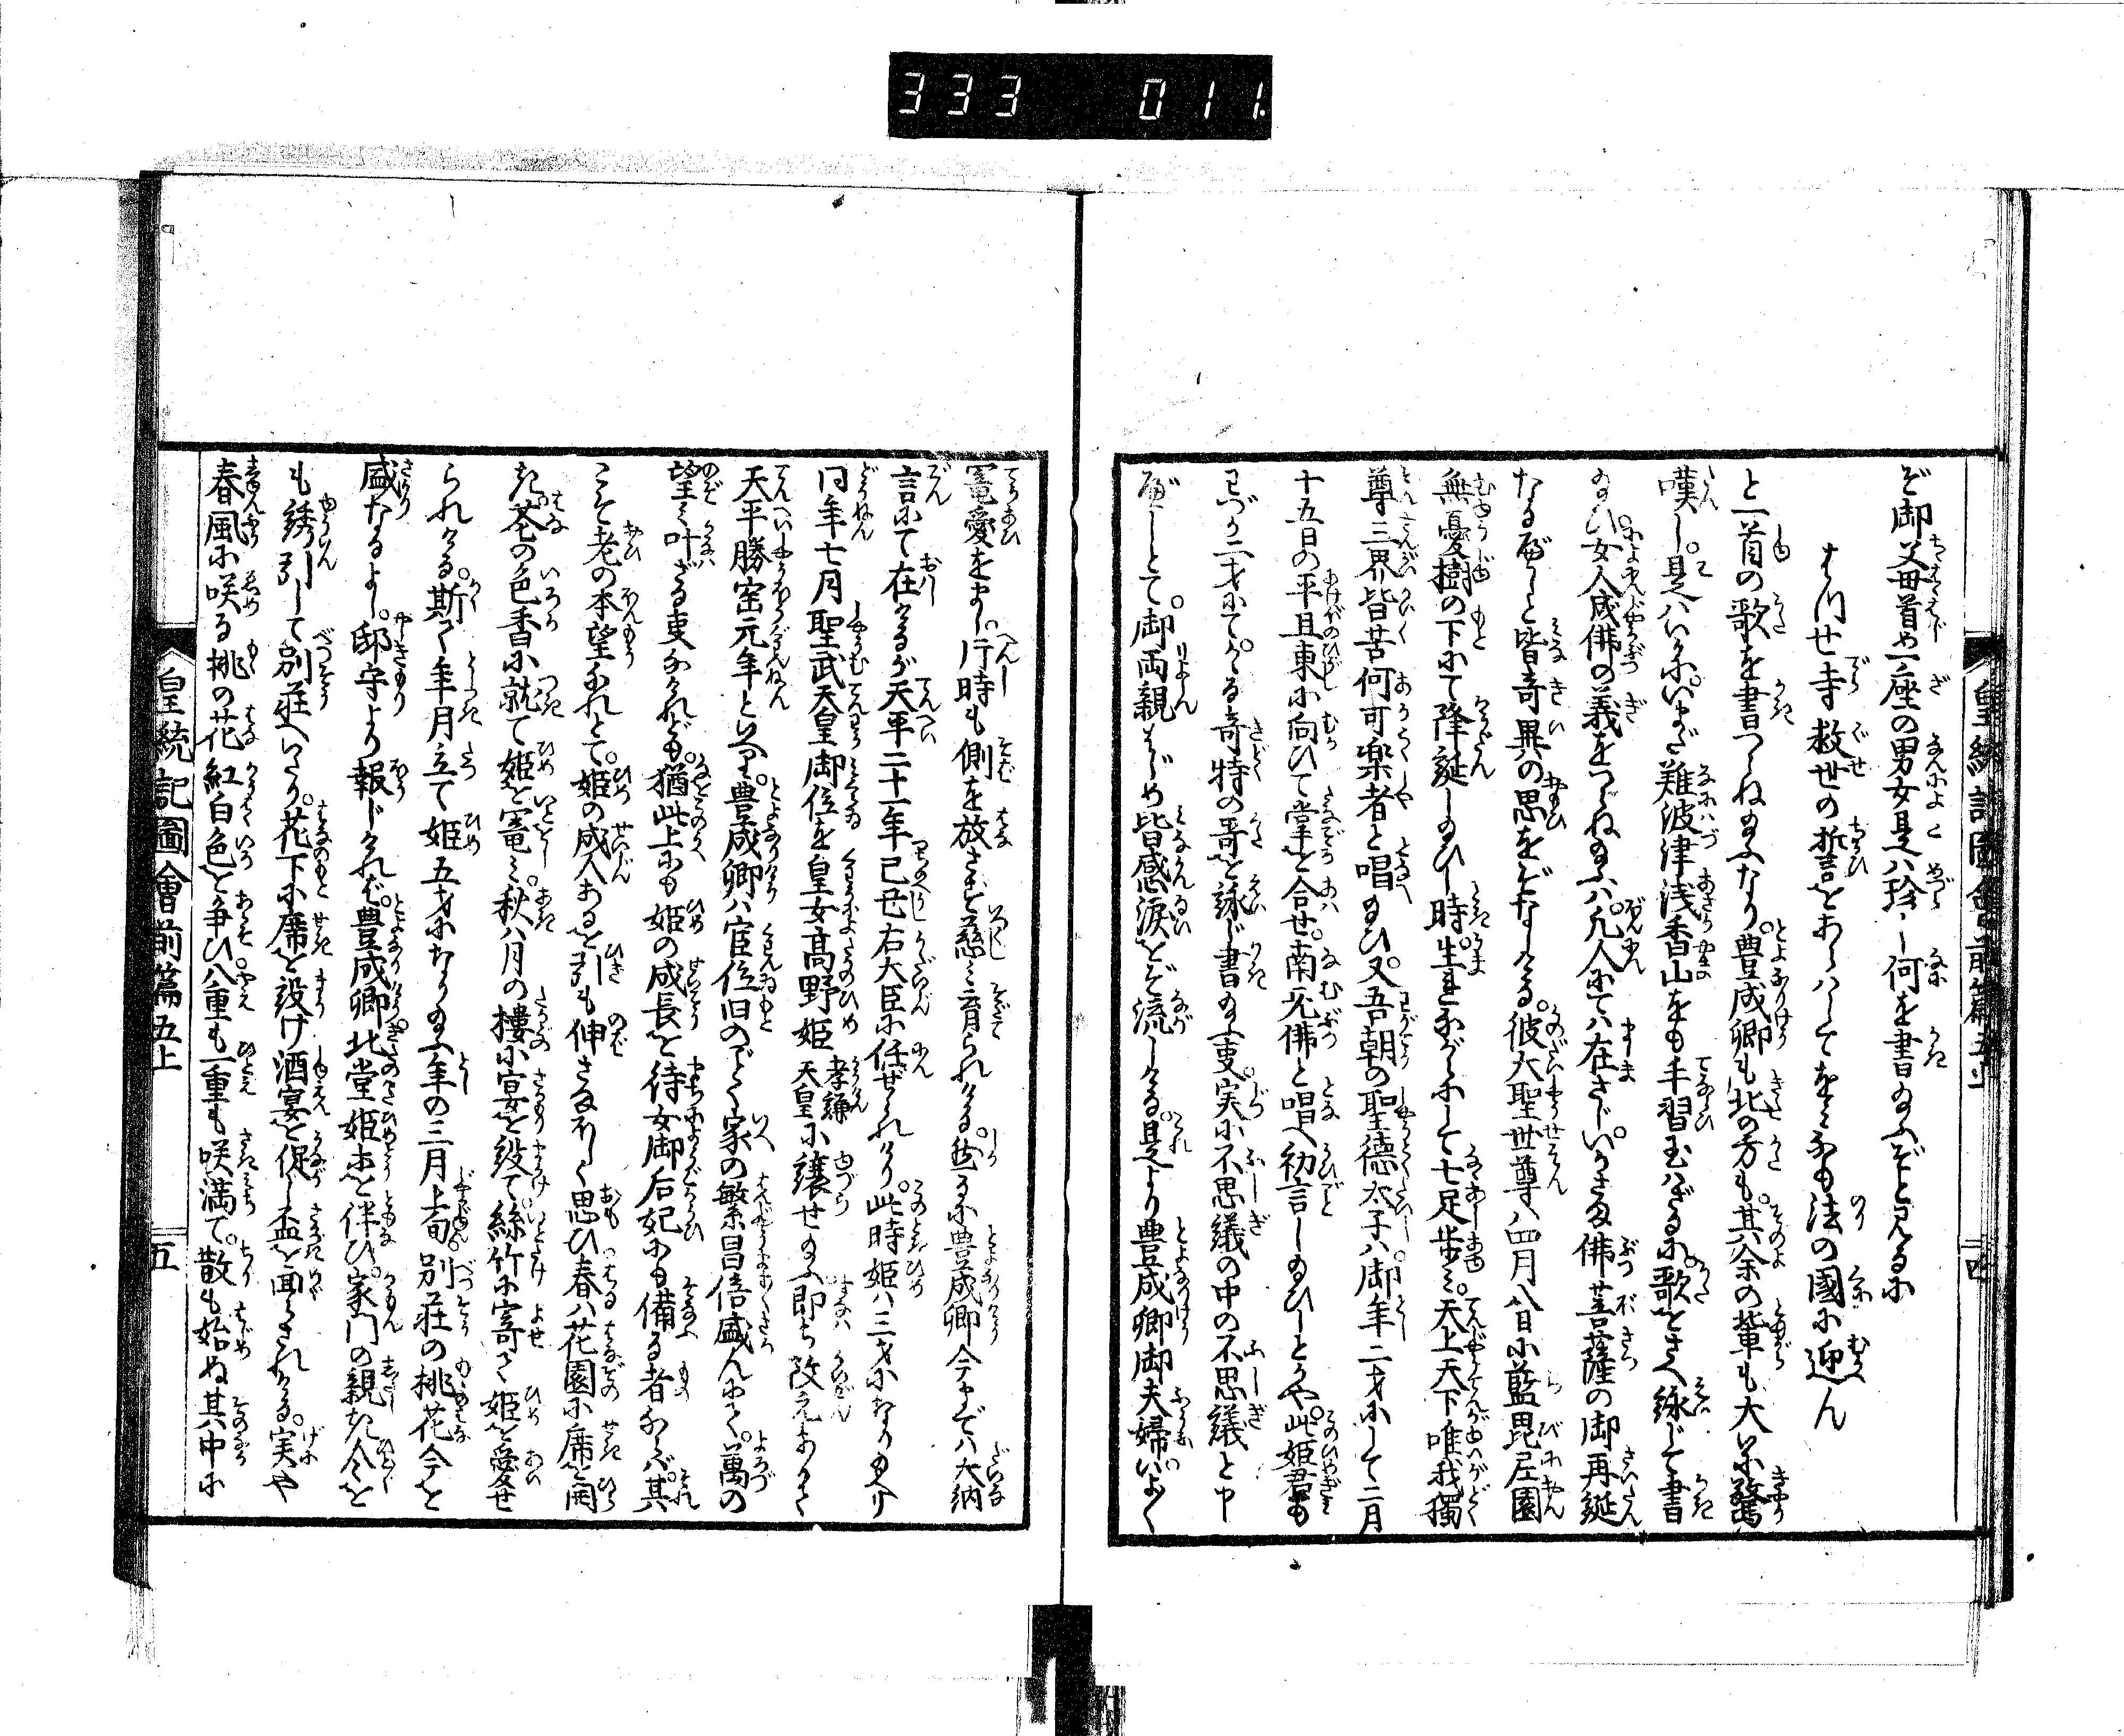 333 011.
皇統記圖會前篇五上 四
ぞ御父母首め一座の男女是ハ珍し何を書給ふぞと見るに
はつせ寺救世の誓をあらハしてをみなも法の國に迎へん
と一首の歌を書つらね給ふなり。豊成卿も北の方も。其余の輩も大に驚
嘆し。是ハいかに。いまだ難波津浅香山をも手習玉ハざるに。歌をさへ詠じて書
給ひ。女人成佛の義をつらね給ふハ。凡人にてハ在さじ。いかさま佛菩薩の御再誕
なるべしと皆奇異の思をぞなしける。彼大聖世尊ハ四月八日に藍毘尼園
無憂樹の下にて降誕し給ひし時。生れながらにして七足歩み。天上天下唯我獨
尊三界皆苦何可楽者と唱給ひ。又吾朝の聖徳太子ハ。御年二才にして二月
十五日の平旦東に向ひて掌を合せ。南无佛と唱へ初言し給ひしとかや。此姫君も
わづか二才にて。かゝる奇特の哥を詠じ書給ふ事。実に不思議の中の不思議と申
べしとて。御両親はじめ皆感涙をぞ流しける。是より豊成卿御夫婦。いよ〳〵
寵愛をまし。片時も側を放さず慈み育られける。然るに豊成卿今までハ大納
言にて在けるが天平二十一年己丑右大臣に任ぜられけり。此時姫ハ三才になり給へり
同年七月聖武天皇御位を皇女高野姫孝謙天皇に譲せ給ふ即ち改元ありて
天平勝宝元年といへり。豊成卿ハ官位旧のごとく家の繁昌倍盛んにて。萬の
望み叶ざる事なけれども。猶此上にも姫の成長を待女御后妃にも備る者ならバ。其
こそ老の本望なれとて。姫の成人あるを引も伸さまほしく思ひ。春ハ花園に席を開
き花の色香に就て姫を寵み。秋ハ月の樓に宴を設て絲竹に寄て姫を愛せ
られける。斯て年月立て姫五才になり給ふ年の三月上旬。別荘の桃花今を
盛なるよし。邸守より報じければ。豊成卿北堂姫君を伴ひ。家門の親き人々を
も誘引して別荘へいたり。花下に席を設け酒宴を促し盃を囬らされける。実や
春風に咲る桃の花紅白色を争ひ八重も一重も咲満て。散も始ぬ其中に
皇統記圖會前篇五上 五